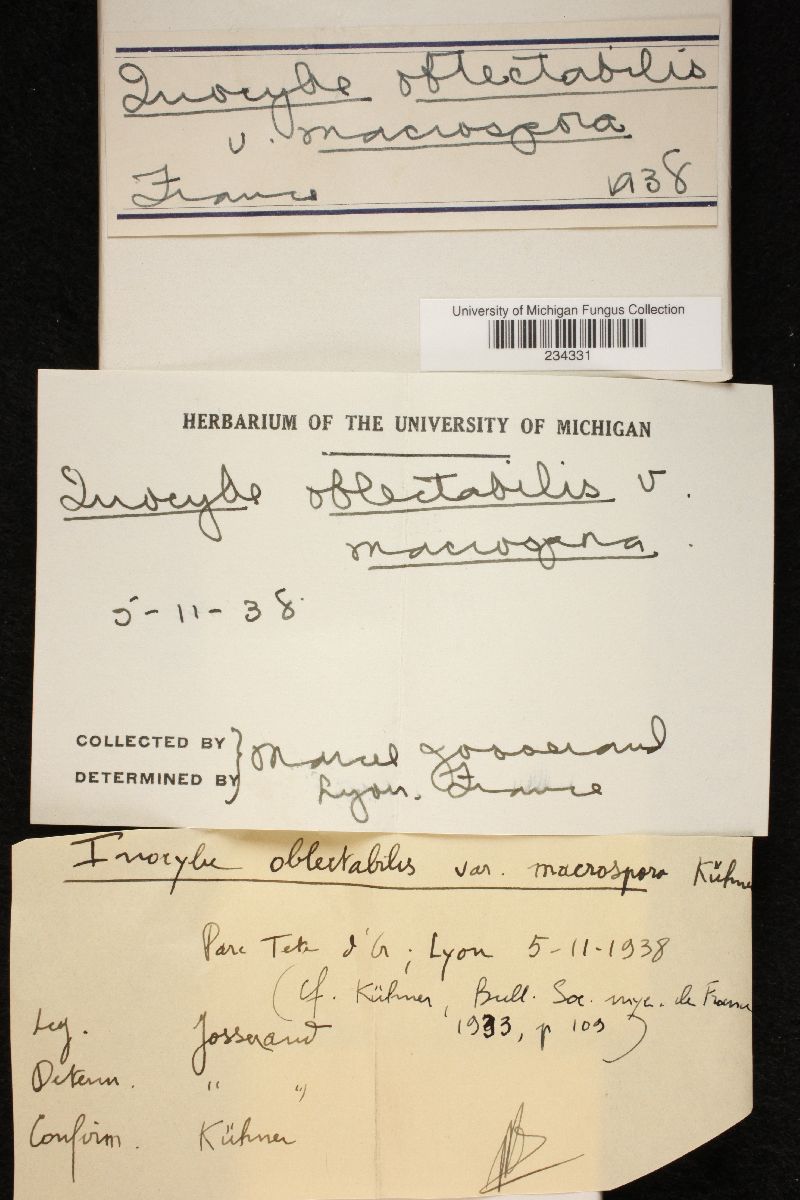 Inocybe oblectabilis
v. macrospora
France 1938
University of Michigan Fungus Collection
234331
HERBARIUM OF THE UNIVERSITY OF MICHIGAN
Inocybe oblectabilis v.
macrospora.
5-11-38
COLLECTED BY } Marcel Josserand
DETERMINED BY Lyon. France
Inocybe oblectabilis var. macrospora Kühne
Parc Tete d'Or; Lyon 5-11-1938
(cf. Kühner, Bull. Soc. myc. de France
1933, p 109)
Leg. Josserand
Determ. " "
Confirm. Kühner